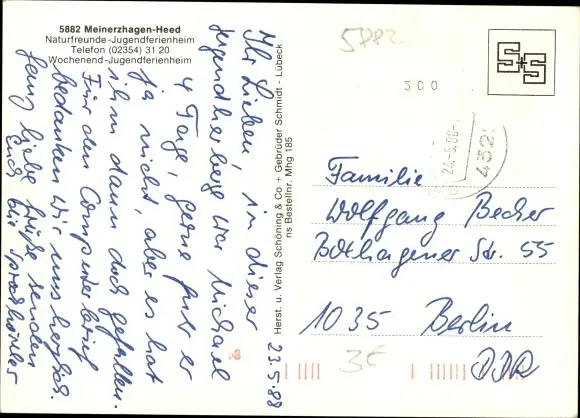 5882 Meinerzhagen-Heed
Naturfreunde-Jugendferienheim
Telefon (02354) 31 20
Wochenend-Jugendferienheim
23.5.88
Ihr Lieben, in dieser
Jugendherberge war Michael
4 Tage, gerne fuhr er
ja nicht, aber es hat
ihm dann doch gefallen.
Für den Computerbrief
bedanken wir uns herzlich.
Ganz liebe Grüße senden
Euch
Herst. u. Verlag Schöning & Co + Gebrüder Schmidt - Lübeck
ns Bestellnr. Mhg 185
5882
200
S+S
24.-5.88-
432
Familie
Wolfgang Becher
Boxhagener Str. 55
1035 Berlin
DDR
3€